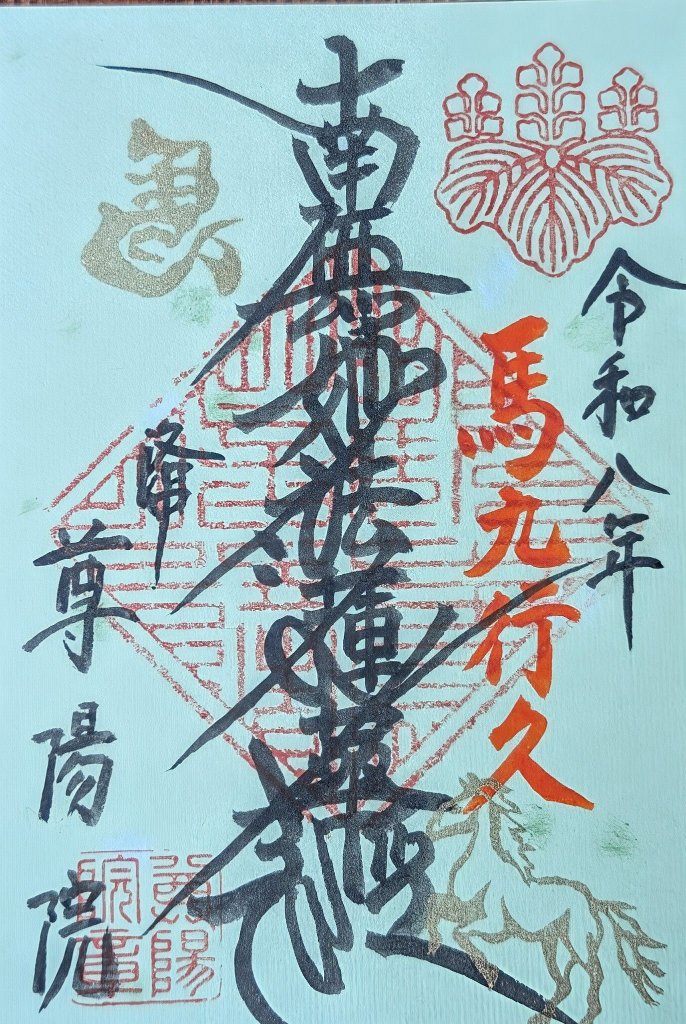 令和八年
馬九行久
南無妙法蓮華経
尊陽院
尊陽院章